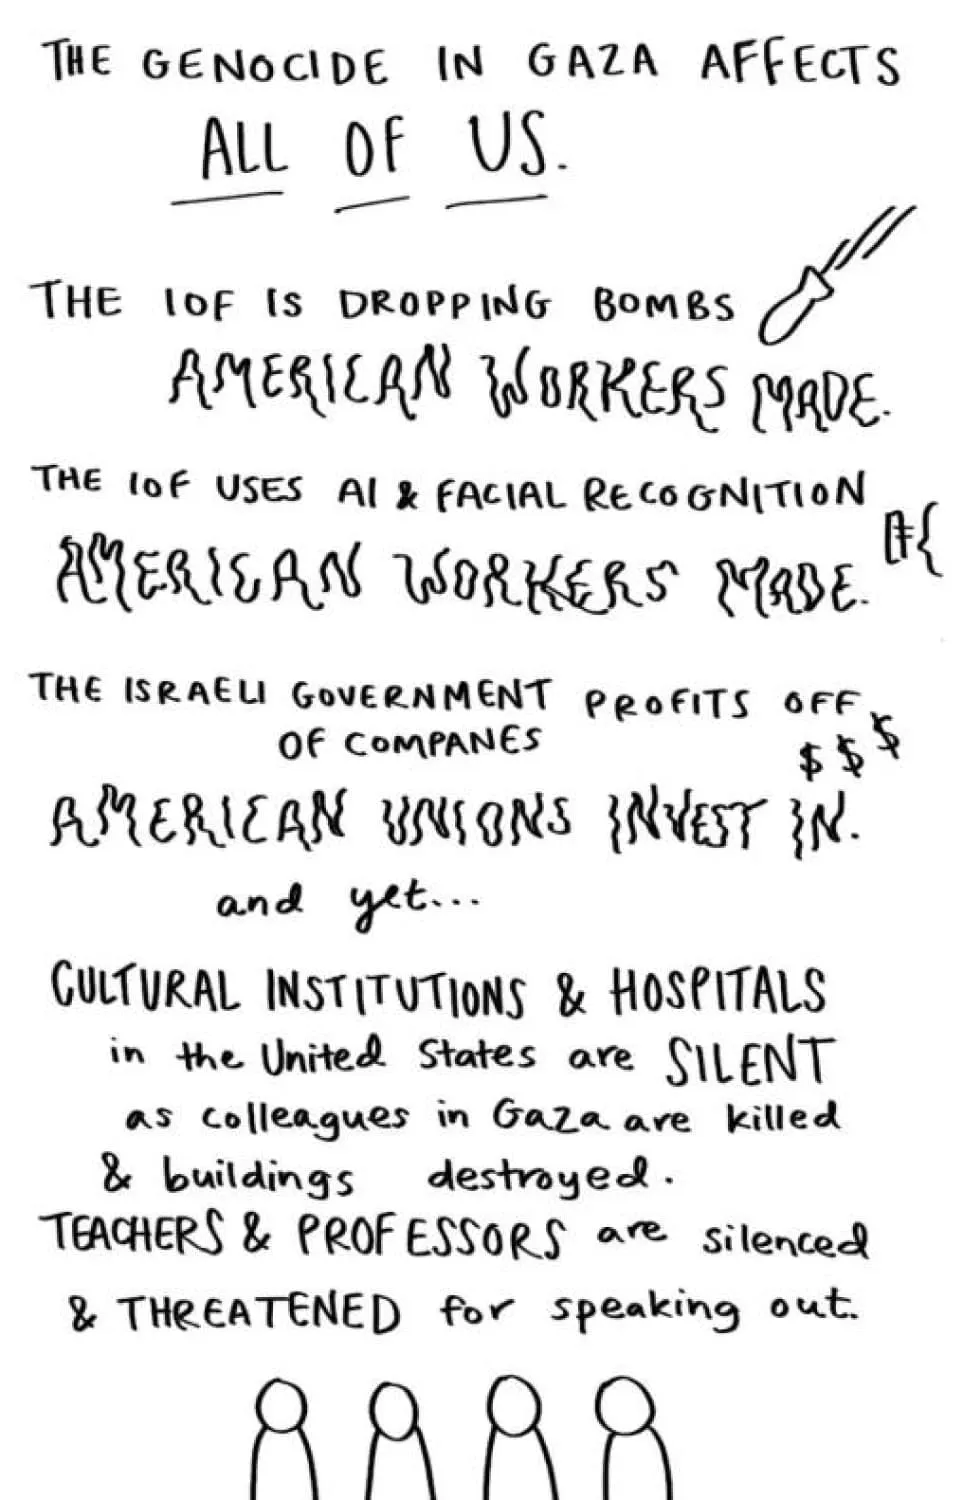 THE GENOCIDE IN GAZA AFFECTS
ALL OF US.
THE IOF IS DROPPING BOMBS
AMERICAN WORKERS MADE.
THE IOF USES AI & FACIAL RECOGNITION
AMERICAN WORKERS MADE.
THE ISRAELI GOVERNMENT PROFITS OFF
OF COMPANES
$ $ $
AMERICAN UNIONS INVEST IN.
and yet...
CULTURAL INSTITUTIONS & HOSPITALS
in the United States are SILENT
as colleagues in Gaza are killed
& buildings destroyed.
TEACHERS & PROFESSORS are silenced
& THREATENED for speaking out.